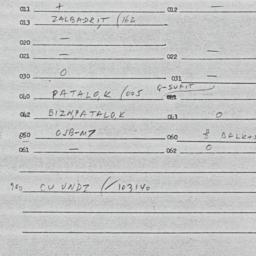 011 + 012 —
013 ZALBADRIT /162
020 —
021 — 022 —
030 0 031 —
040 PATALO,K /005 G-SUFIT
042 BIZMPATALO,K 043 0
050 OSB-M7 060 § BALK
061 — 062 0
900 CU UNDZ /103140